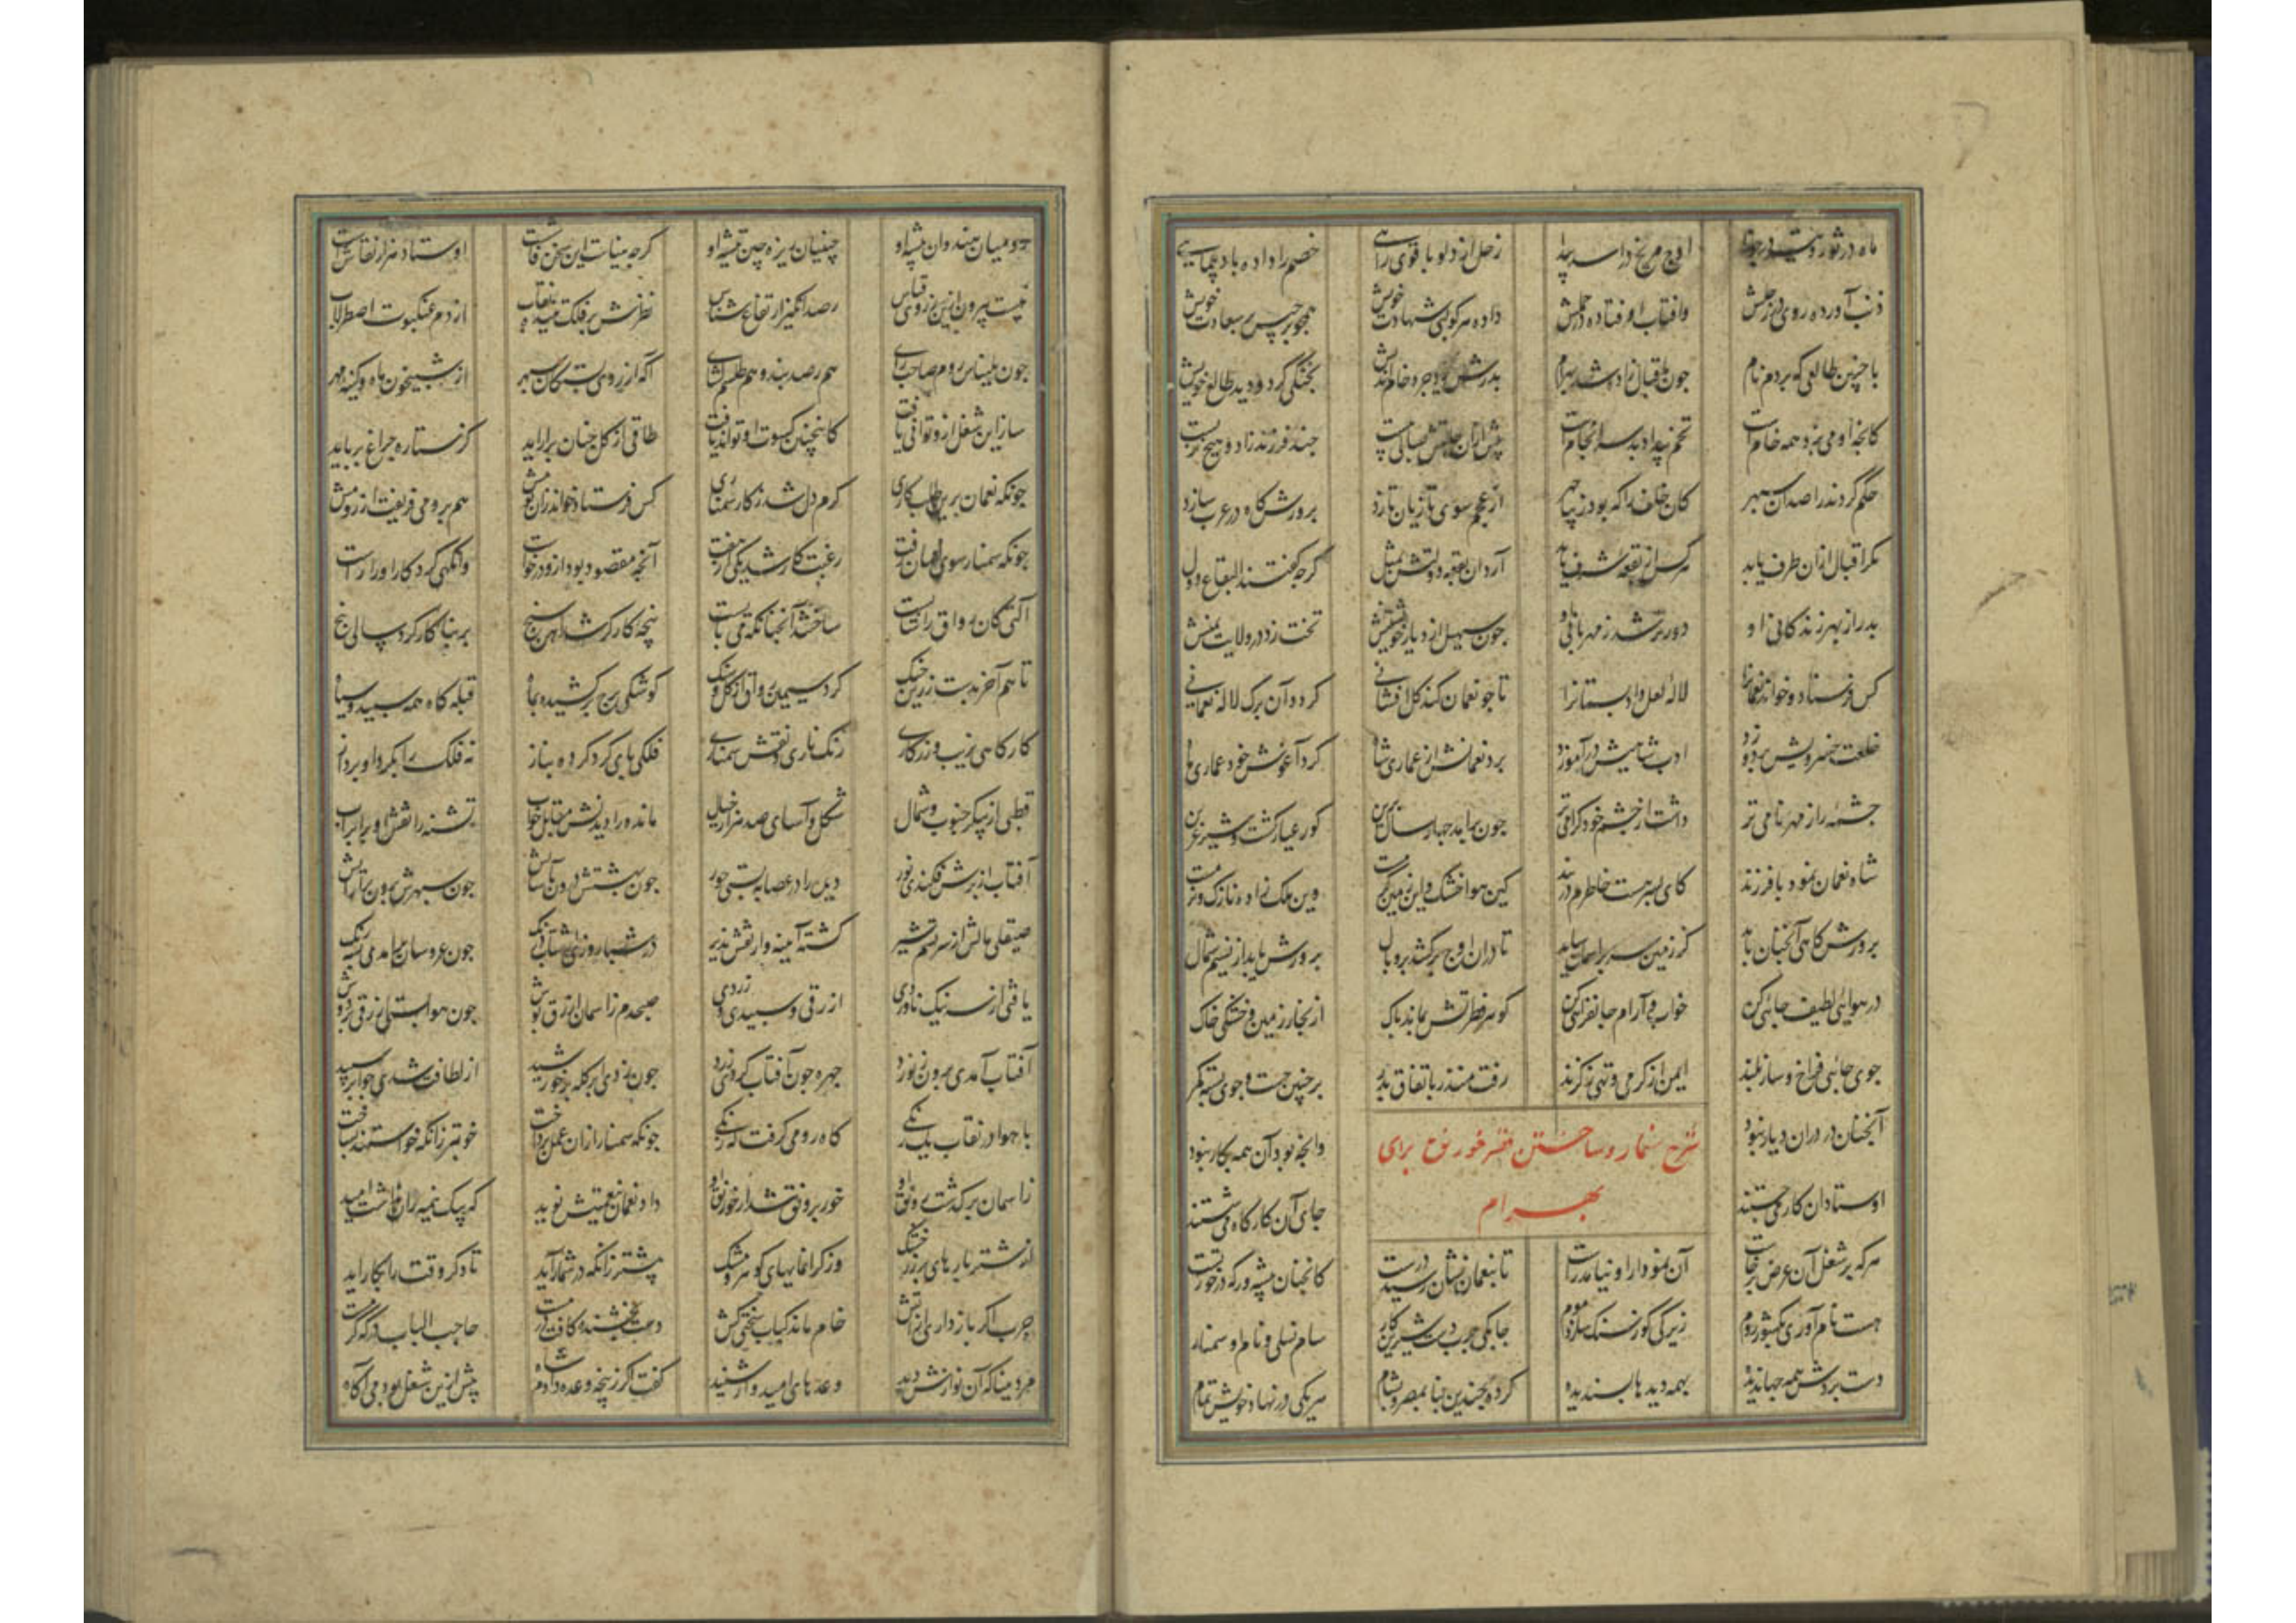 ماه در ثور و تیر در جوزا اوج مریخ در اسد پیدا زحل از دلو با قوی رایی خصم را داده باد پیمایی
ذنب آورده روی در زحلش وافتاب اوفتاده در حملش داده هر کوکبی شهادت خویش همچو برجیس بر سعادت خویش
با چنین طالعی که بردم نام چون باقبال زاده شد بهرام پدرش یزدجرد خام اندیش پختگی کرد و دید طالع خویش
کانچه او می پزد همه خام است تخم بیداد بد سرانجام است پیش ازان حالتش بسالی بیست چند فرزند زاد و هیچ نزیست
حکم کردند راصدان سپهر کان خلف را که بود زیبا چهر از عجم سوی تازیان تازد پرورشکاه در عرب سازد
مکر اقبال ازان طرف یابد هر کس از بقعه شرف یابد آرد آن بقعه دولتش بمثل کرچه کفتند للبقاع دول
پدر از بهر زندکانی او دور تر شد ز مهربانی او چون سهیل از دیار خویشتنش تخت زد در ولایت یمنش
کس فرستاد و خواند نعمان را لاله لعل داد بستان را تا چو نعمان کند کل افشانی کردد آن برک لاله نعمانی
خلعت خسرویش بر دوزد ادب شاهیش در آموزد برد نعمانش از عماری شاه کرد آغوش خود عماری ماه
چشمه را ز مهر نامی تر داشت از چشم خود کرامی تر چون برآمد چهار سال برین کور عیار کشت و شیر عرین
شاه نعمان نمود با فرزند کای پسر هست خاطرم در بند کین هوا خشک و این زمین کرمست وین ملک زاده نازک و نرمست
پرورشکاهی آنچنان باید کز زمین سر بر آسمان ساید تا دران اوج بر کشد پر و بال پرورش یابد از نسیم شمال
در هوائی لطیف جائی کن خواب و آرام جانفزائی کن کوهر فطرتش بماند پاک از بخار زمین و خشکی خاک
جوی جائی فراخ و ساز بلند ایمن از کرمی و تهی ز کزند رفت منذر باتفاق پدر بر چنین جست و جوی بسته کمر
آنچنان در دران دیار نبود وانچه بود آن همه بکار نبود
شرح سنمار و ساختن قصر خورنق برای
بهرام
اوستادان کار می جستند جای آن کارکاه می شستند
هر که بر شغل آن غرض برخاست آن نمودار او نیامد راست تا بنعمان نشان رسید درست کانچنان پیشه ور که درخور تست
هست نام آوری بکشور روم زیرکی کو ز سنک سازد موم چابکی چرب دست شیرین کار سام نسلی و نام او سمنار
دست بردش همه جهان دیده بهمه دیده ها پسندیده کرده چندین بنا بمصر و بشام هر یکی در نهاد خویش تمام
رومیان هندوان پیشه او چینیان ریزه چین تیشه او کرچه بناست این سخن فاشست اوستاد هزار نقاشست
نیست بیرون ازین ز روی قیاس رصد انکیز ارتفاع شناس نظرش بر فلک تنیده لعاب از دم عنکبوت اصطرلاب
چون بلیناس روم صاحب رای هم رصد بند و هم طلسم کشای اکه از روی بستکان سپهر از شبیخون ماه و کینه مهر
ساز این شغل ازو توانی یافت کاینچنین کسوت او تواند بافت طاقی از کل چنان برآراید کز ستاره چراغ برباید
چونکه نعمان برین طلب کاری کرم دل شد ز کار سمناری کس فرستاد و خواند ازان رومش هم برومی فریفت از رومش
چونکه سمنار سوی نعمان رفت رغبت کار شد یکی در هفت آنچه مقصود بود ازو درخواست وانکهی کرد کار او را راست
آلتی کان رواق را شایست ساختند آنچنانکه می بایست پنجه کارکر شد آهن سنج بر بنا کار کرد سالی پنج
تا هم آخر بدست زرین چنک کرد سیمین رواقی از کل و سنک کوشکی برج بر کشیده بماه قبله کاه همه سپید و سیاه
کارکاهی بزیب و زرکاری رنک ناری و نقش سمناری فلکی پای کرد کرده بناز نه فلک را بکرد او پرواز
قطبی از پیکر جنوب و شمال شکل وآسای صد هزار خیال مانده را دیدنش مقابل خواب تشنه را نقش او برابر آب
آفتاب ار برش فکندی نور دیده را در عصابه بستی حور چون بهشتش درون پر آسایش چون سپهرش برون پر آرایش
صیقلی مالش از سریشم و شیر کشته آیینه وار نقش پذیر در شبا روزی از شتاب و درنک چون عروسان برآمدی بسه رنک
یافتی از سه رنک ناوردی ازرقی و سپیدی و زردی صبحدم ز آسمان ازرق پوش چون هوا بستی ازرقی بر دوش
آفتاب آمدی برون ز نورد چهره چون آفتاب کردی زرد چون زدی ابر کله بر خورشید از لطافت شدی چو ابر سپید
با هوا در نقاب یک رنکی کاه رومی کرفت که زنکی چونکه سمنار ازان عمل پرداخت خوبتر زانکه خواستند بساخت
ز آسمان بر کذشت رونق او خور برونق شد از خورنق او داد نعمان بنعمتیش نوید که یکی نیمه زان نداشت امید
از شتر بار های پر زر خشک وز کرانمایهای کوهر و مشک بیشتر زانکه در شمار آید تا دکر وقت را بکار آید
چوب اکر باز داری از آتش خام ماند کباب سختی کش دست بخشنده کافت درمست حاجب الباب درکه کرمست
مرد بنا که آن نوازش دید وعد های امیدوار شنید کفت اکر زانچه وعده دادم شاه پیش ازین شغل بودمی آکاه